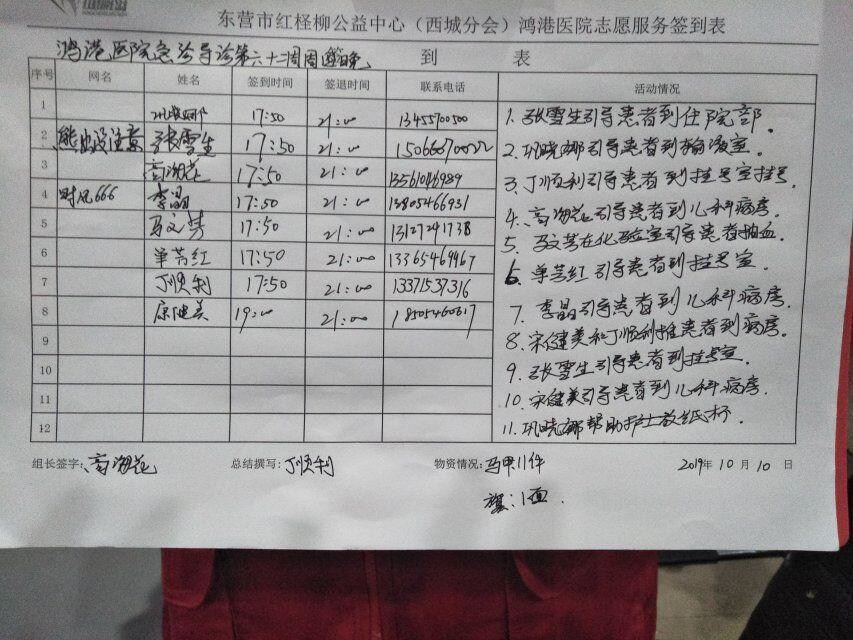 东营市红柽柳公益中心（西城分会）鸿港医院志愿服务签到表
鸿港医院急诊导诊第六十二周周四晚 到 表
序号 网名 姓名 签到时间 签退时间 联系电话 活动情况
1 巩晓娜 17:50 21:00 13455700500
2 熊出没注意 张雪生 17:50 21:00
3 高海花 17:50 21:00 13561046989
4 时风666 李晶 17:50 21:00 13805466931
5 马文芳 17:50 21:00 13127241738
6 单芳红 17:50 21:00 13365469967
7 丁顺利 17:50 21:00 13371537316
8 宋健美 19:00 21:00 18505460617
9
10
11
12
1. 张雪生引导患者到住院部.
2. 巩晓娜引导患者到输液室.
3. 丁顺利引导患者到挂号室挂号.
4. 高海花引导患者到儿科病房.
5. 马文芳在化验室引导患者抽血
6. 单芳红引导患者到挂号室.
7. 李晶引导患者到儿科病房.
8. 宋健美和丁顺利推患者到病房.
9. 张雪生引导患者到挂号室.
10. 宋健美引导患者到儿科病房.
11. 巩晓娜帮助护士放纸杯.
组长签字: 高海花 总结撰写: 丁顺利 物资情况: 马甲11件 2019年10月10日
旗: 1面.